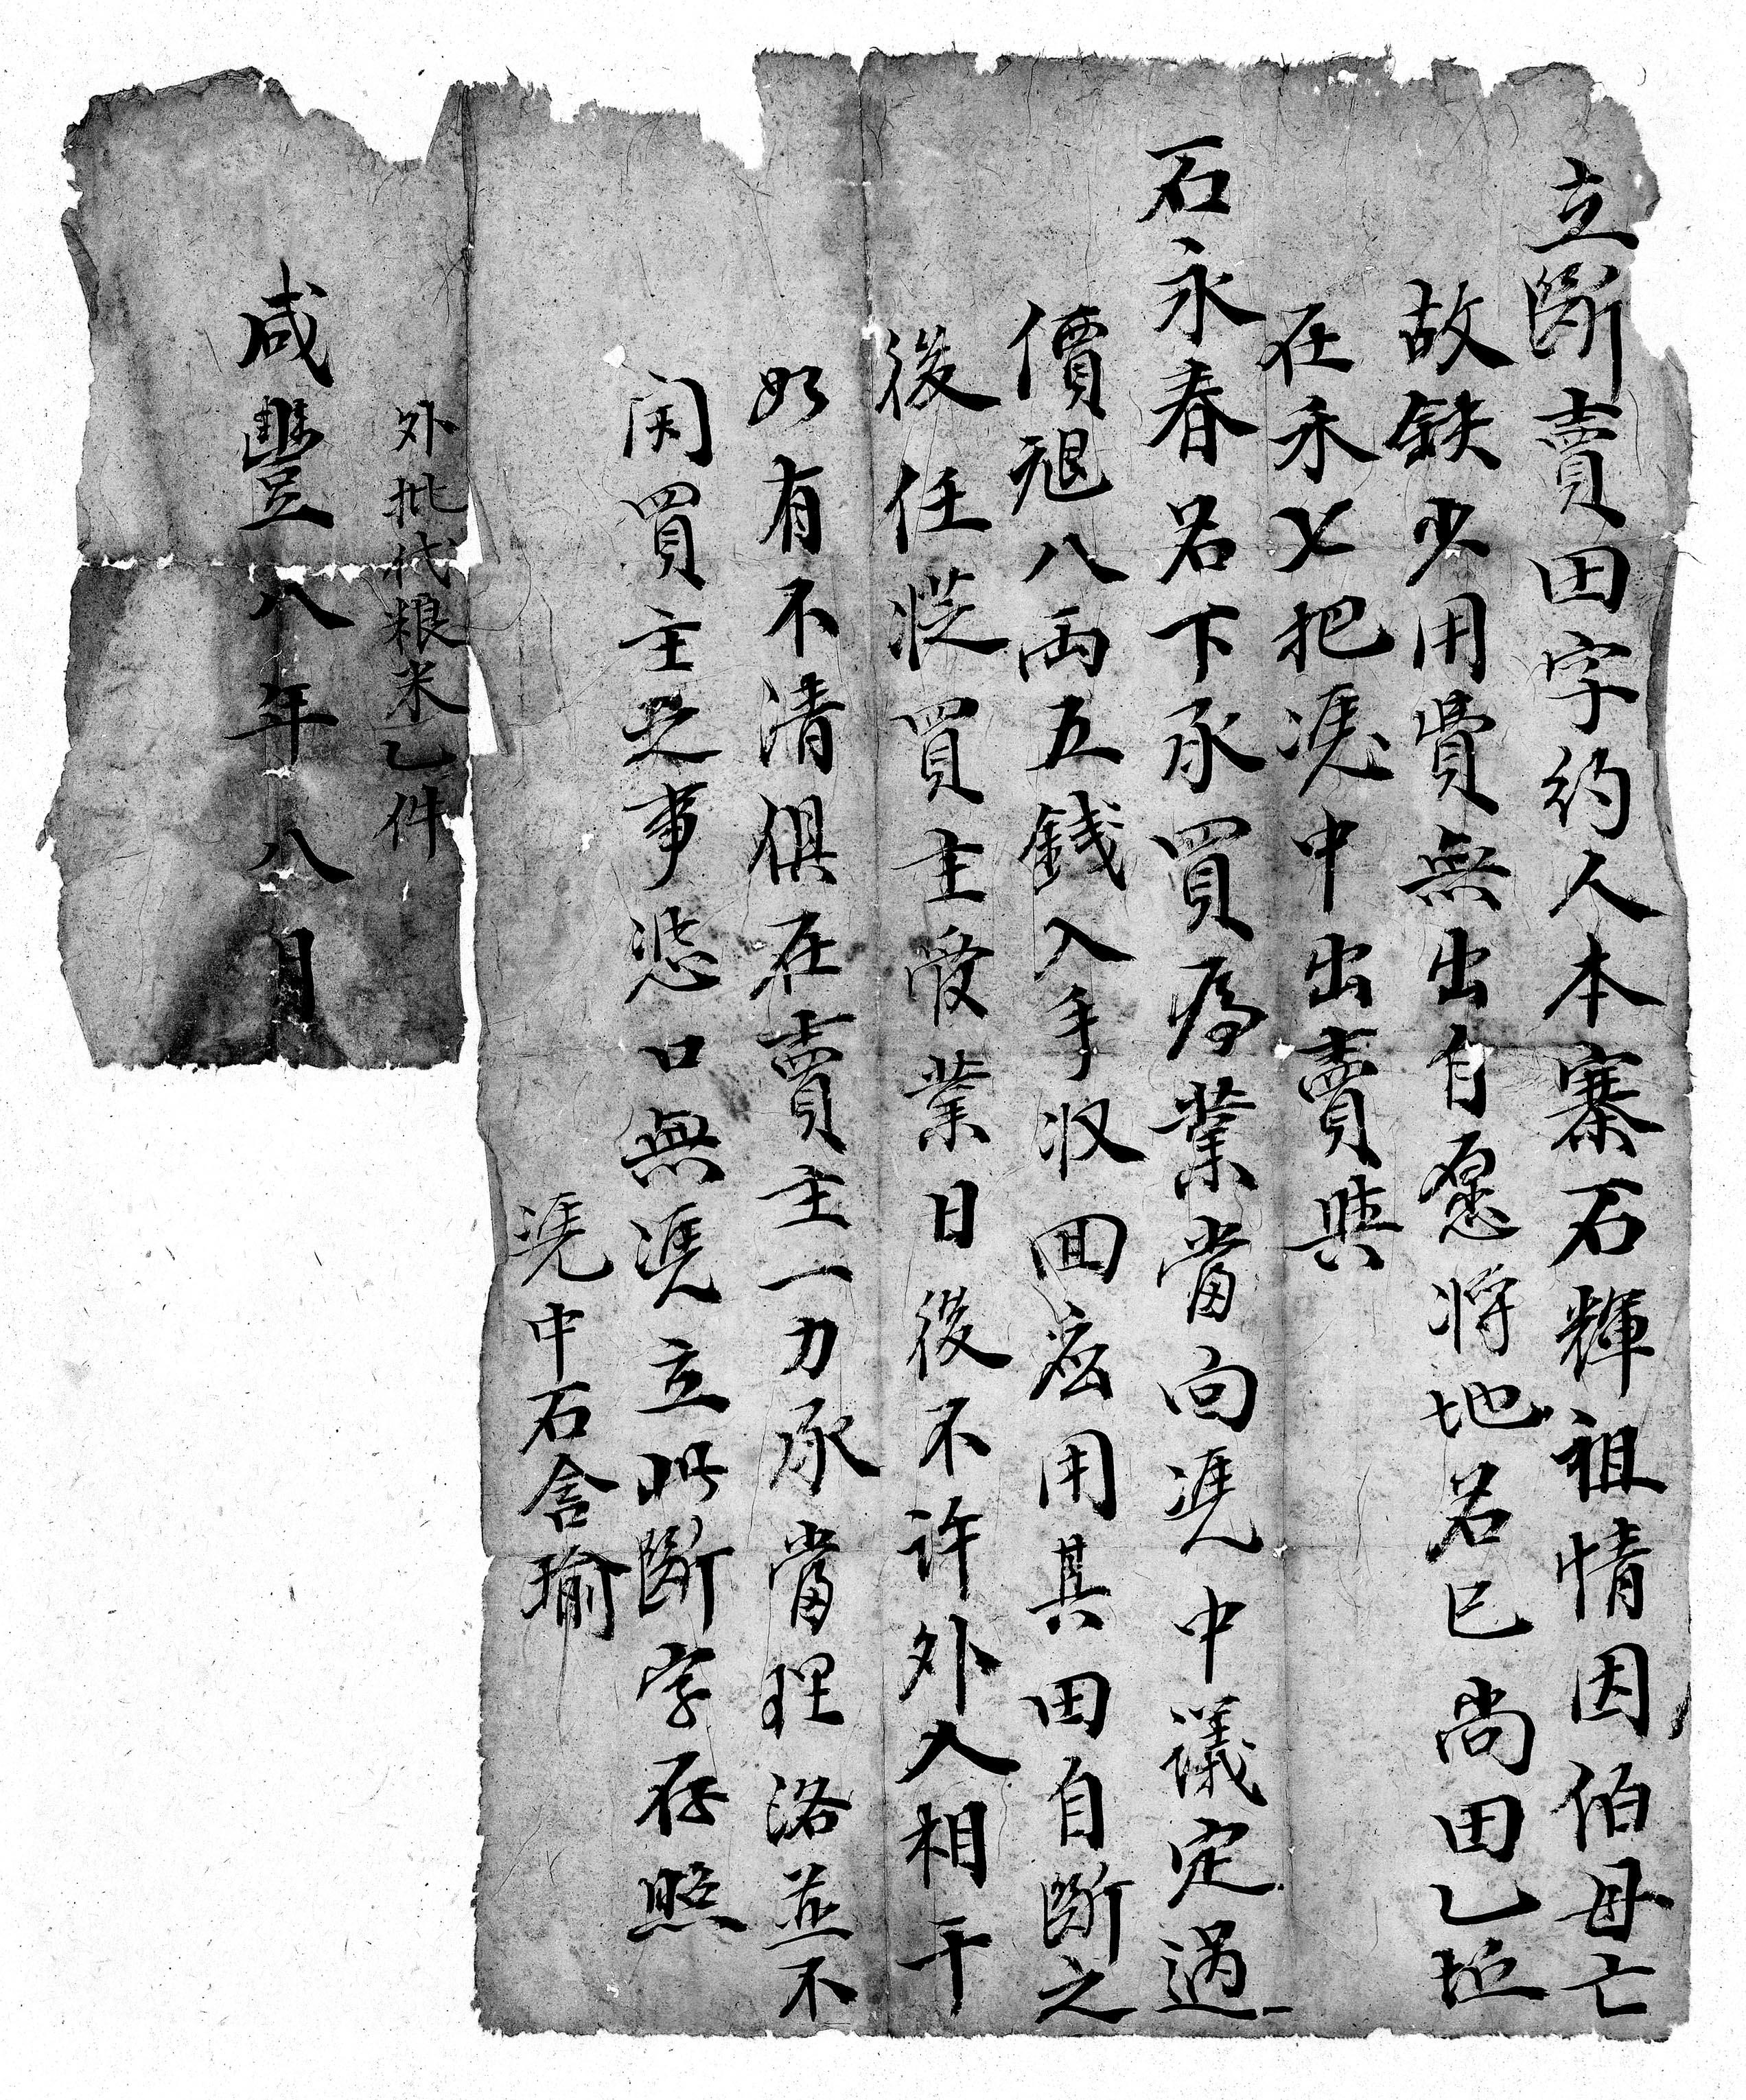 立斷賣田字約人本寨石輝祖情因伯母亡
故缺少用費無出自愿將地名巳尚田乙坵
在禾七把凴中出賣與
石永春名下承買為業當向凴中議定過
價艮八両五錢入手収回應用其田自斷之
後任從買主受業日後不許外人相干
如有不清俱在賣主一力承當理洛並不
関買主之事恐口無凴立此斷字存照
凴中石含瑜
外批代粮米乙件
咸豐八年八月